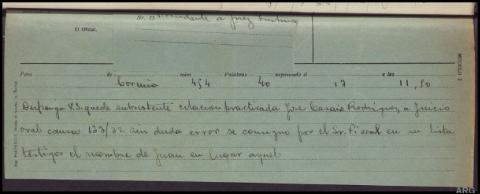 El Oficial,
MODELO 2
Para de núm Palabras expresando el a las
Coruña 454 40 17 11,50
Disponga V.S. quede subsistente citacion practicada José Casais Rodriguez, a juicio
oral causa 133/32 sin duda error se consigno por el Sr. Fiscal en su lista
testigos el nombre de Juan en lugar aquel
ARG